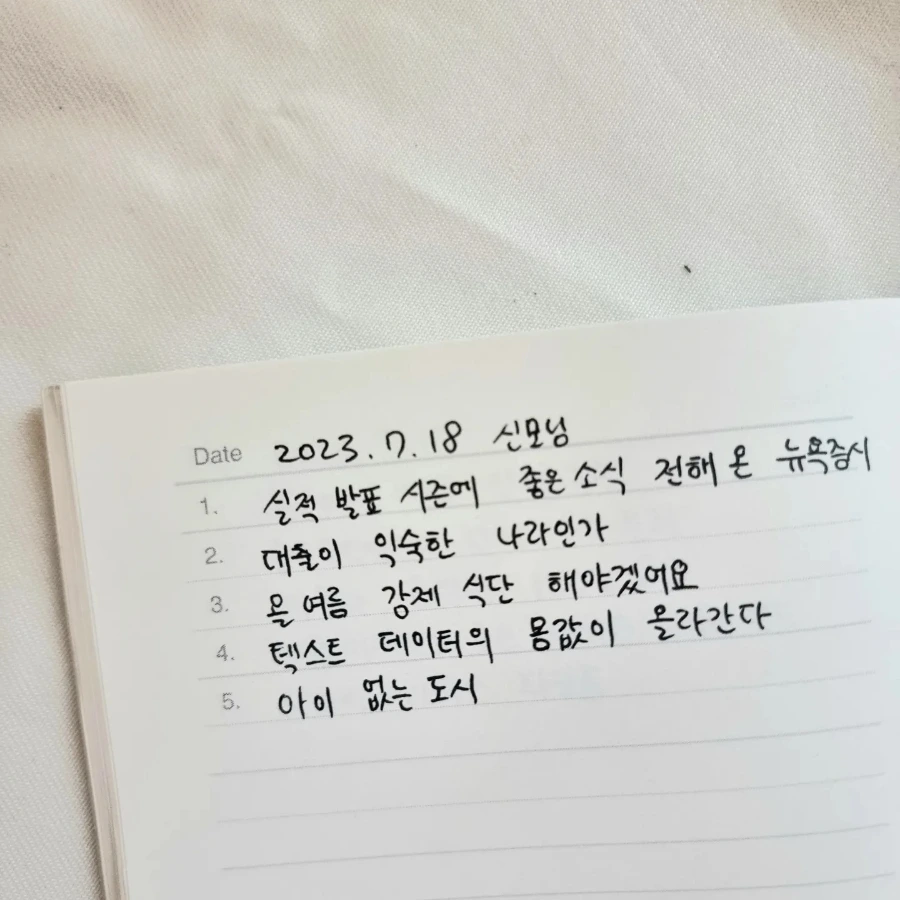 Date 2023.7.18 신모닝
1. 실적 발표 시즌에 좋은 소식 전해 온 뉴욕증시
2. 대출이 익숙한 나라인가
3. 올 여름 강제 식단 해야겠어요
4. 텍스트 데이터의 몸값이 올라간다
5. 아이 없는 도시